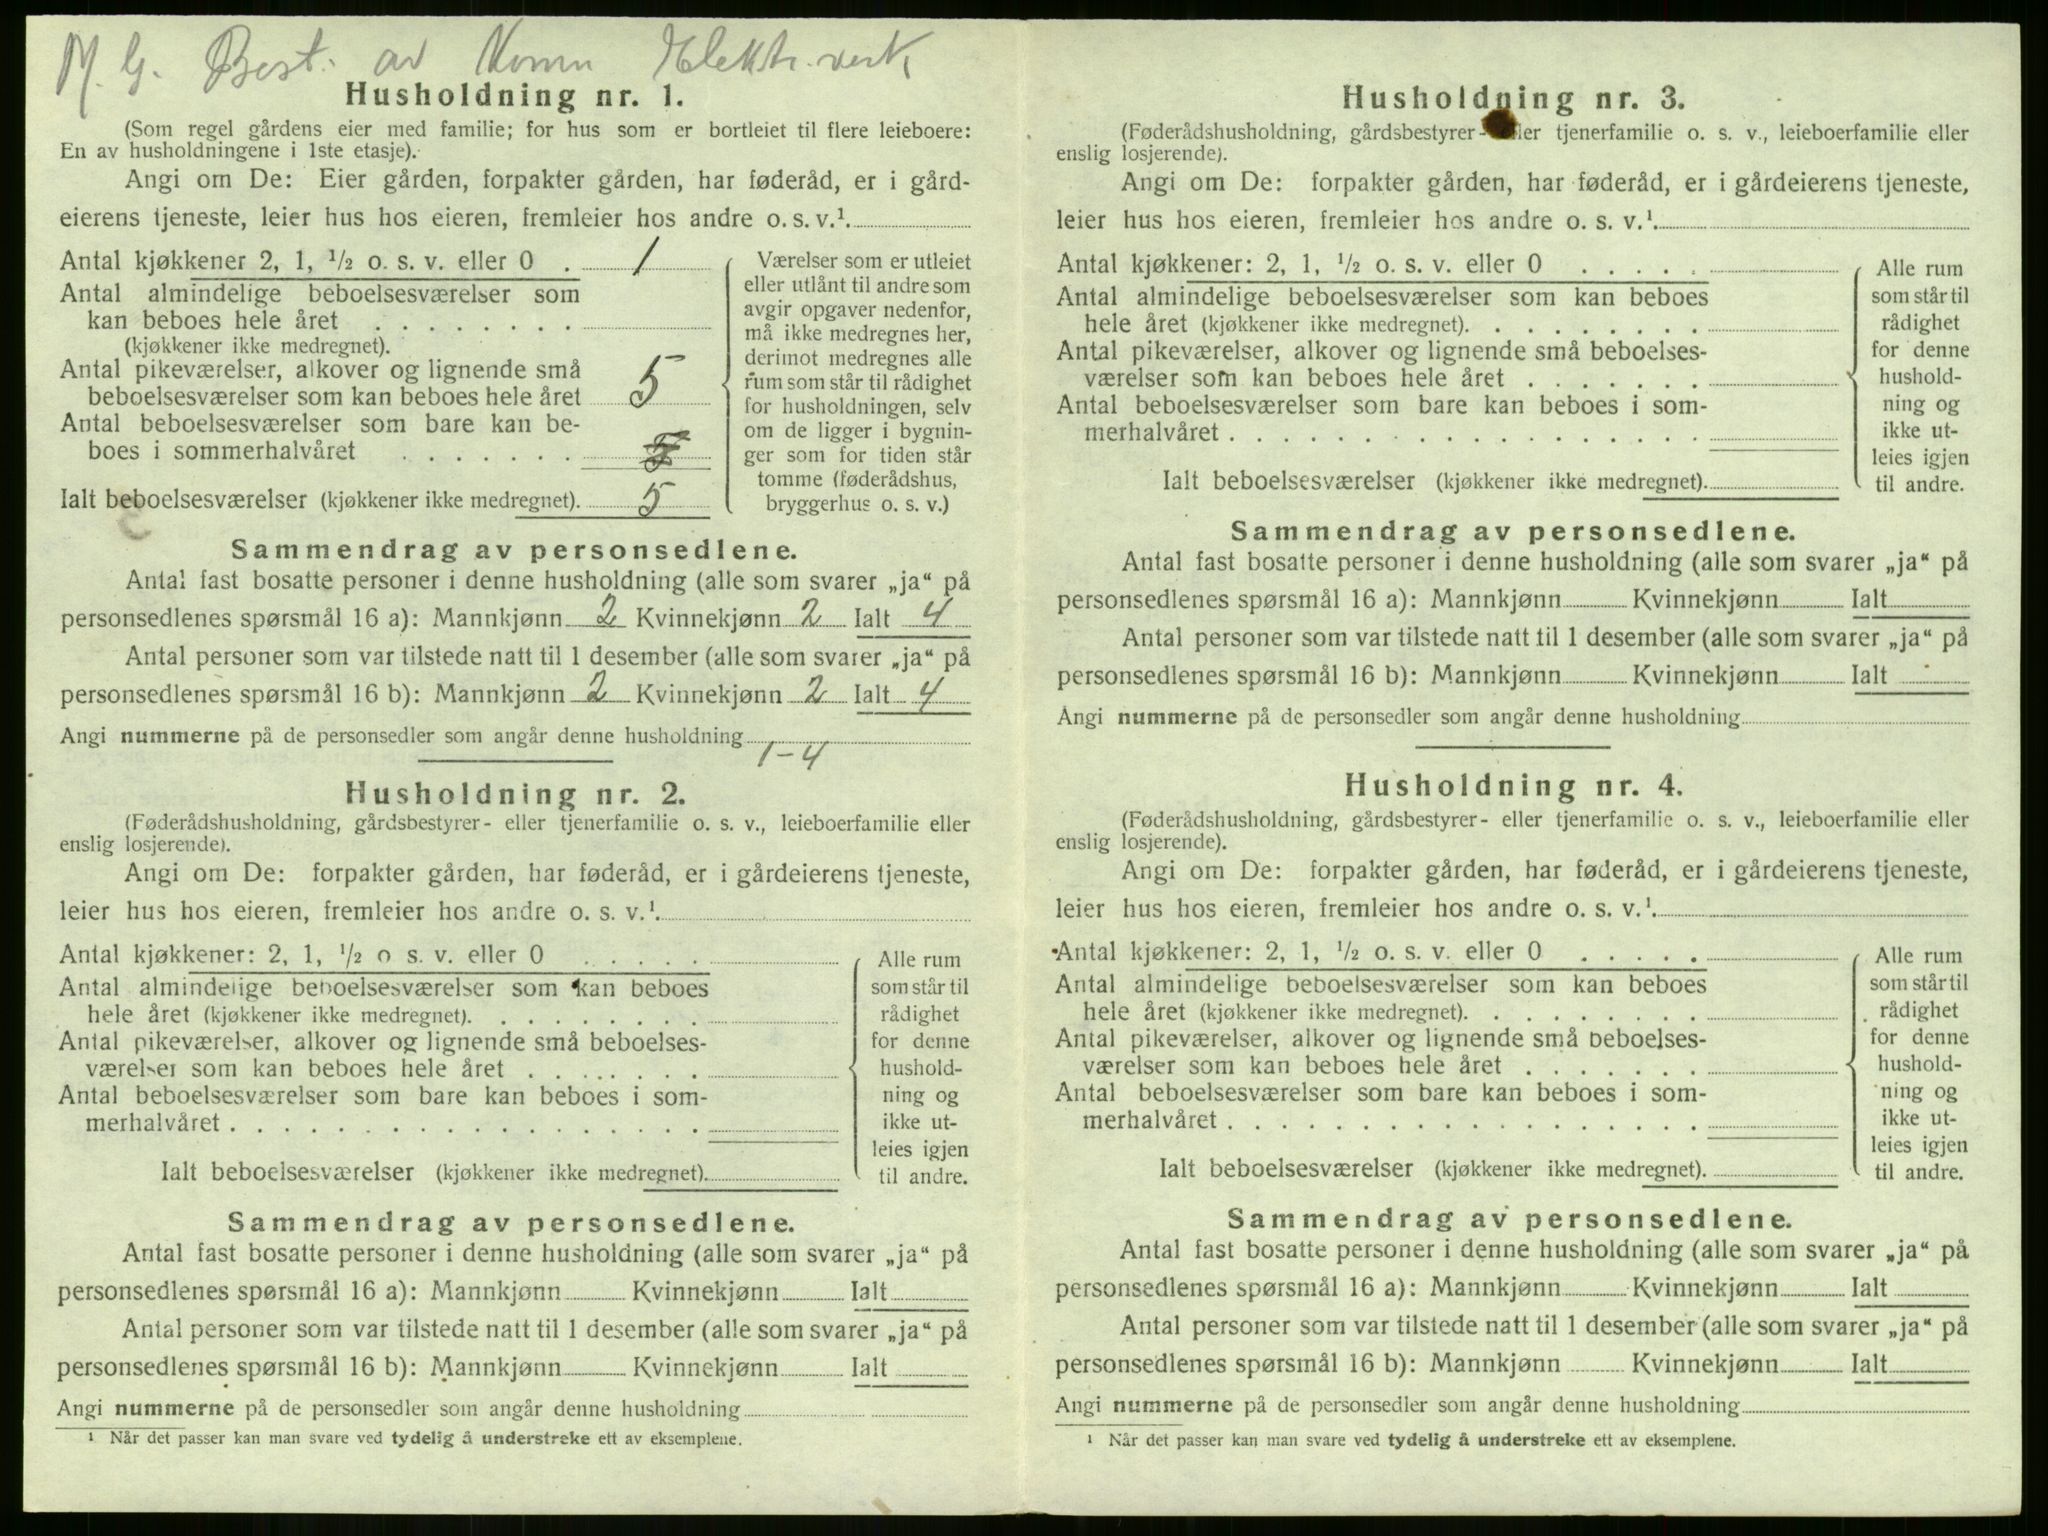 M. G. Best. av Komm Elektr. verk
Husholdning nr. 1.
(Som regel gårdens eier med familie; for hus som er bortleiet til flere leieboere:
En av husholdningene i 1ste etasje).
Angi om De: Eier gården, forpakter gården, har føderåd, er i gård-
eierens tjeneste, leier hus hos eieren, fremleier hos andre o. s. v.¹
Antal kjøkkener 2, 1, ½ o. s. v. eller 0 . 1
Antal almindelige beboelsesværelser som
kan beboes hele året . . . . . . . .
(kjøkkener ikke medregnet).
Antal pikeværelser, alkover og lignende små
beboelsesværelser som kan beboes hele året 5
Antal beboelsesværelser som bare kan be-
boes i sommerhalvåret . . . . . . .
Ialt beboelsesværelser (kjøkkener ikke medregnet). 5
Værelser som er utleiet
eller utlånt til andre som
avgir opgaver nedenfor,
må ikke medregnes her,
derimot medregnes alle
rum som står til rådighet
for husholdningen, selv
om de ligger i bygnin-
ger som for tiden står
tomme (føderådshus,
bryggerhus o. s. v.)
Sammendrag av personsedlene.
Antal fast bosatte personer i denne husholdning (alle som svarer „ja“ på
personsedlenes spørsmål 16 a): Mannkjønn 2 Kvinnekjønn 2 Ialt 4
Antal personer som var tilstede natt til 1 desember (alle som svarer „ja“ på
personsedlenes spørsmål 16 b): Mannkjønn 2 Kvinnekjønn 2 Ialt 4
Angi nummerne på de personsedler som angår denne husholdning
1-4
Husholdning nr. 2.
(Føderådshusholdning, gårdsbestyrer- eller tjenerfamilie o. s. v., leieboerfamilie eller
enslig losjerende).
Angi om De: forpakter gården, har føderåd, er i gårdeierens tjeneste,
leier hus hos eieren, fremleier hos andre o. s. v.¹
Antal kjøkkener: 2, 1, ½ o s. v. eller 0 . . . . .
Antal almindelige beboelsesværelser som kan beboes
hele året (kjøkkener ikke medregnet). . . . . . . . .
Antal pikeværelser, alkover og lignende små beboelses-
værelser som kan beboes hele året . . . . . . .
Antal beboelsesværelser som bare kan beboes i som-
merhalvåret . . . . . . . . . . . . . . . . . .
Ialt beboelsesværelser (kjøkkener ikke medregnet).
Alle rum
som står til
rådighet
for denne
hushold-
ning og
ikke ut-
leies igjen
til andre.
Sammendrag av personsedlene.
Antal fast bosatte personer i denne husholdning (alle som svarer „ja“ på
personsedlenes spørsmål 16 a): Mannkjønn Kvinnekjønn Ialt
Antal personer som var tilstede natt til 1 desember (alle som svarer „ja“ på
personsedlenes spørsmål 16 b): Mannkjønn Kvinnekjønn Ialt
Angi nummerne på de personsedler som angår denne husholdning
¹ Når det passer kan man svare ved tydelig å understreke ett av eksemplene.
Husholdning nr. 3.
(Føderådshusholdning, gårdsbestyrer- eller tjenerfamilie o. s. v., leieboerfamilie eller
enslig losjerende).
Angi om De: forpakter gården, har føderåd, er i gårdeierens tjeneste,
leier hus hos eieren, fremleier hos andre o. s. v.¹
Antal kjøkkener: 2, 1, ½ o. s. v. eller 0 . . . . .
Antal almindelige beboelsesværelser som kan beboes
hele året (kjøkkener ikke medregnet). . . . . . . . .
Antal pikeværelser, alkover og lignende små beboelses-
værelser som kan beboes hele året . . . . . . .
Antal beboelsesværelser som bare kan beboes i som-
merhalvåret . . . . . . . . . . . . . . . . . .
Ialt beboelsesværelser (kjøkkener ikke medregnet).
Alle rum
som står til
rådighet
for denne
hushold-
ning og
ikke ut-
leies igjen
til andre.
Sammendrag av personsedlene.
Antal fast bosatte personer i denne husholdning (alle som svarer „ja“ på
personsedlenes spørsmål 16 a): Mannkjønn Kvinnekjønn Ialt
Antal personer som var tilstede natt til 1 desember (alle som svarer „ja“ på
personsedlenes spørsmål 16 b): Mannkjønn Kvinnekjønn Ialt
Angi nummerne på de personsedler som angår denne husholdning
Husholdning nr. 4.
(Føderådshusholdning, gårdsbestyrer- eller tjenerfamilie o. s. v., leieboerfamilie eller
enslig losjerende).
Angi om De: forpakter gården, har føderåd, er i gårdeierens tjeneste,
leier hus hos eieren, fremleier hos andre o. s. v.¹
Antal kjøkkener: 2, 1, ½ o. s. v. eller 0 . . . . .
Antal almindelige beboelsesværelser som kan beboes
hele året (kjøkkener ikke medregnet). . . . . . . . .
Antal pikeværelser, alkover og lignende små beboelses-
værelser som kan beboes hele året . . . . . . .
Antal beboelsesværelser som bare kan beboes i som-
merhalvåret . . . . . . . . . . . . . . . . . .
Ialt beboelsesværelser (kjøkkener ikke medregnet).
Alle rum
som står til
rådighet
for denne
hushold-
ning og
ikke ut-
leies igjen
til andre.
Sammendrag av personsedlene.
Antal fast bosatte personer i denne husholdning (alle som svarer „ja“ på
personsedlenes spørsmål 16 a): Mannkjønn Kvinnekjønn Ialt
Antal personer som var tilstede natt til 1 desember (alle som svarer „ja“ på
personsedlenes spørsmål 16 b): Mannkjønn Kvinnekjønn Ialt
Angi nummerne på de personsedler som angår denne husholdning
¹ Når det passer kan man svare ved tydelig å understreke ett av eksemplene.